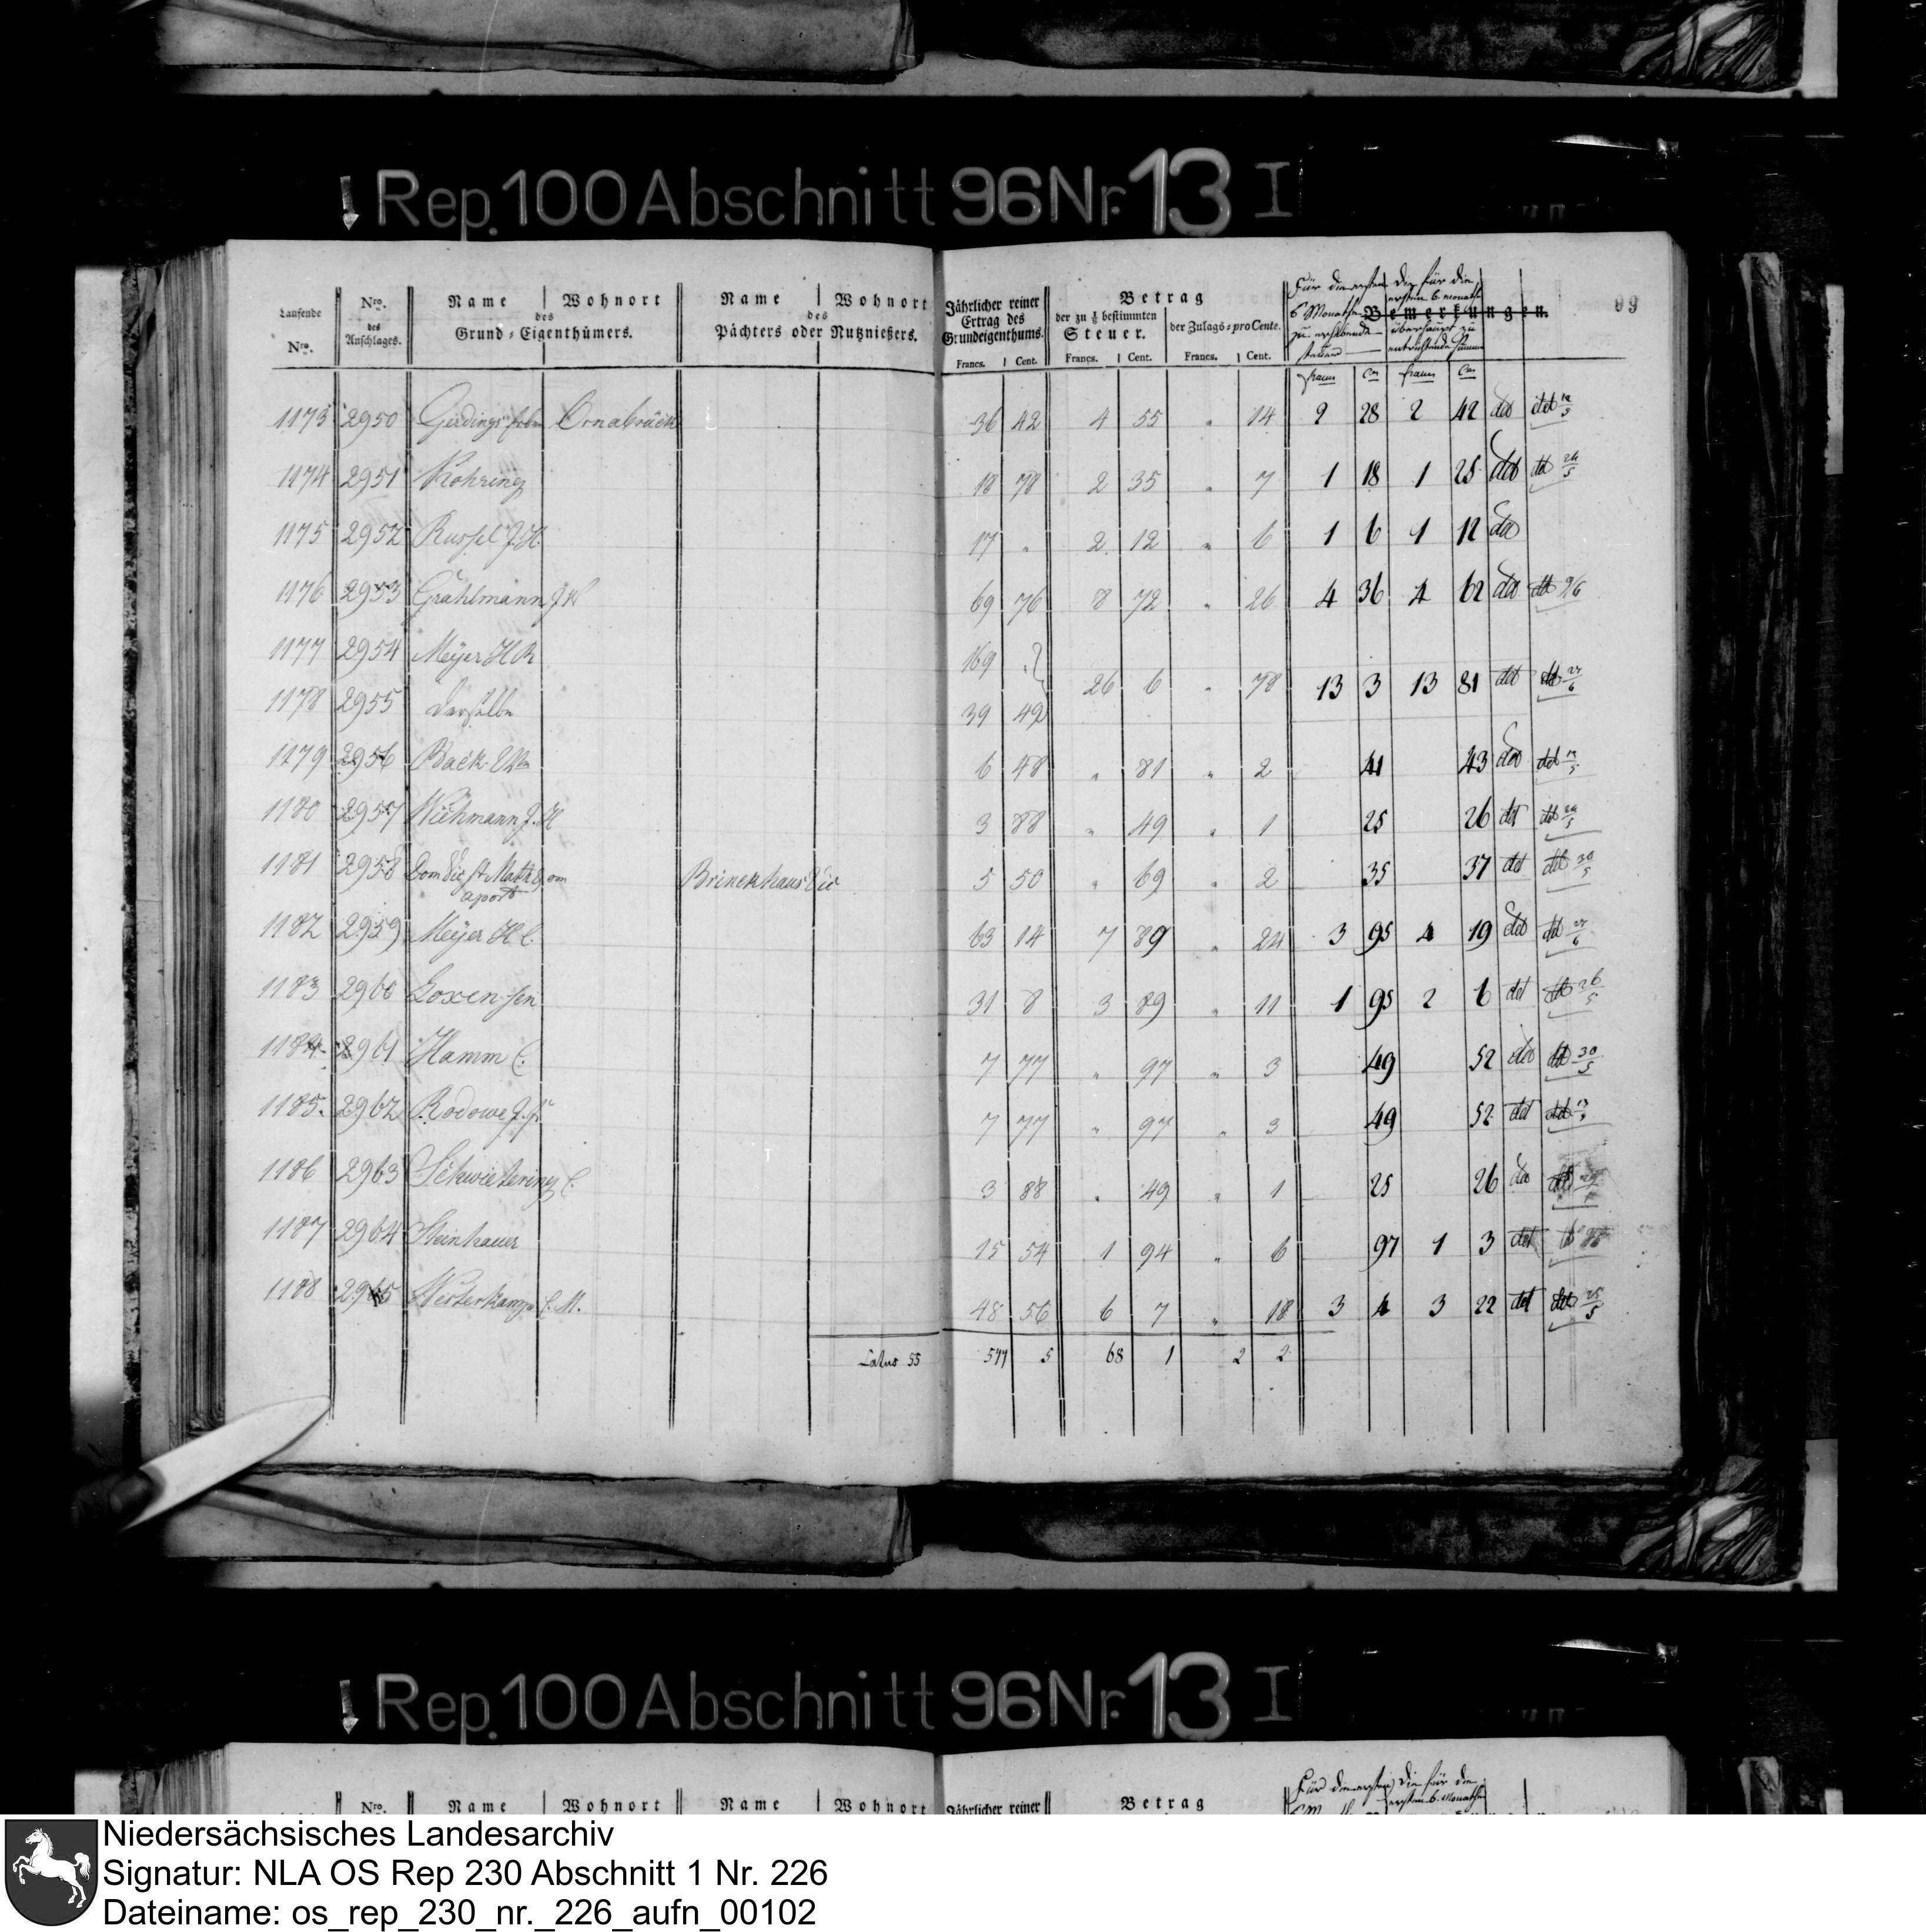 Rep. 100 Abschnitt 96 Nr. 13 I
99
Laufende Nro.
Nro. des Anschlages.
Name | Wohnort des Grund-Eigenthümers.
Name | Wohnort des Pächters oder Nutznießers.
Jährlicher reiner Ertrag des Grundeigenthums. Francs. | Cent.
Betrag
der zu 1/8 bestimmten Steuer. Francs. | Cent.
der Zulags-pro Cente. Francs. | Cent.
Für die ersten 6 Monathe zu erhebende
Die für die ersten 6 Monathe überhaupt zu entrichtende Summe
Bemerkungen.
franc Cm franc Cm
1173 2950 Gerdings Osnabrück 36 42 4 55 " 14 2 28 2 42 det det 12/5
1174 2951 Rohring 18 78 2 35 " 7 1 18 1 25 det det 24/5
1175 2952 Russel J. H. 17 " 2 12 " 6 1 6 1 12 det
1176 2953 Grahlmann 69 76 8 72 " 26 4 36 4 62 det det 9/6
1177 2954 Meyer H R 169 "
1178 2955 Derselbe 39 49 26 6 " 78 13 3 13 81 det det 27/6
1179 2956 Back 6 48 " 81 " 2 41 43 det det
1180 2957 Wichmann J. H 3 88 " 49 " 1 25 26 det det 24/5
1181 2958 Dom Vic St Math
aport Brinckhaus Vic 5 50 " 69 " 2 35 37 det det 30/5
1182 2959 Meyer H C. 63 14 7 89 " 24 3 95 4 19 det det 27/6
1183 2960 Loxen sen 31 8 3 89 " 11 1 95 2 6 det det 26/5
1184 2961 Hamm C. 7 77 " 97 " 3 49 52 det det 30/5
1185 2962 Rodowe J. 7 77 " 97 " 3 49 52 det det
1186 2963 Schwietering C. 3 88 " 49 " 1 25 26 det det
1187 2964 Steinhauer 15 54 1 94 " 6 97 1 3 det
1188 2965 Westerkamp C. M. 48 56 6 7 " 18 3 4 3 22 det det 25/5
Latus 55 544 5 68 1 2 2
Rep. 100 Abschnitt 96 Nr. 13 I
Nro. Name | Wohnort Name | Wohnort Jährlicher reiner Betrag
Für die ersten Die für die
ersten 6 Monathe
Niedersächsisches Landesarchiv
Signatur: NLA OS Rep 230 Abschnitt 1 Nr. 226
Dateiname: os_rep_230_nr._226_aufn_00102